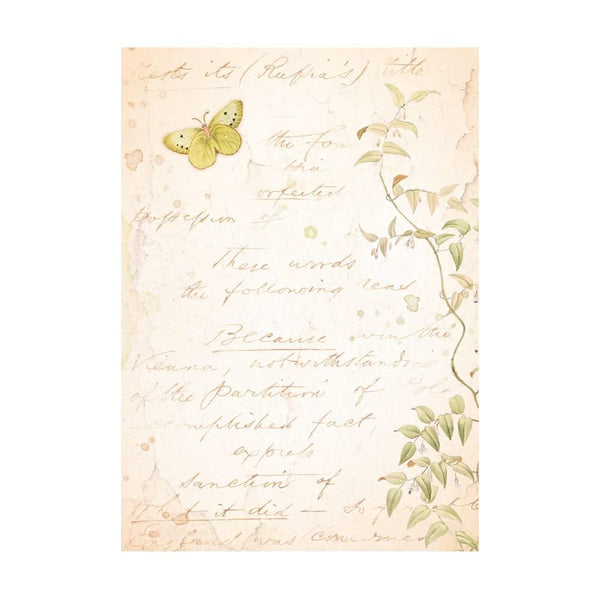 rests its (Russia's) title
the fou
via
orfected
possession of
These words
the following reas
Because in the
Vienna, notwithstanding
of the partition of Pola
ccomplished fact,
express
sanction of
it did — So far
England (was concerned